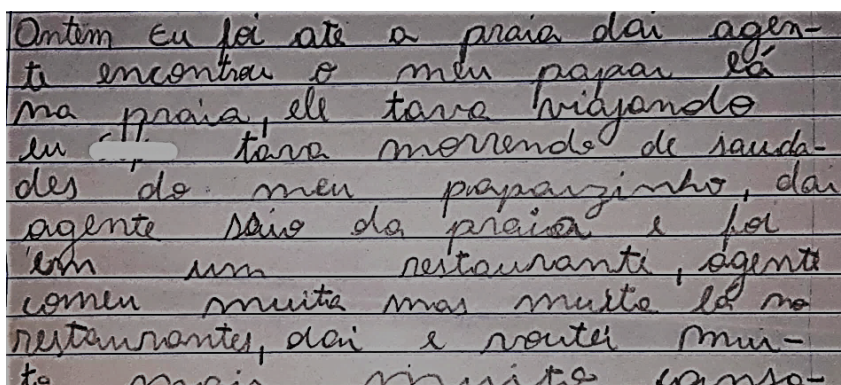 Ontem eu foi até a praia dai agen-
ti encontrou o meu papai lá
na praia, ele tava viajando
eu tava morrendo de sauda-
des do meu papaizinho, dai
agente saio da praia e foi
em um restauranti, agente
comeu muita mas muita lá no
restaurantes, dai e voutei mui-
to mais muito canso-